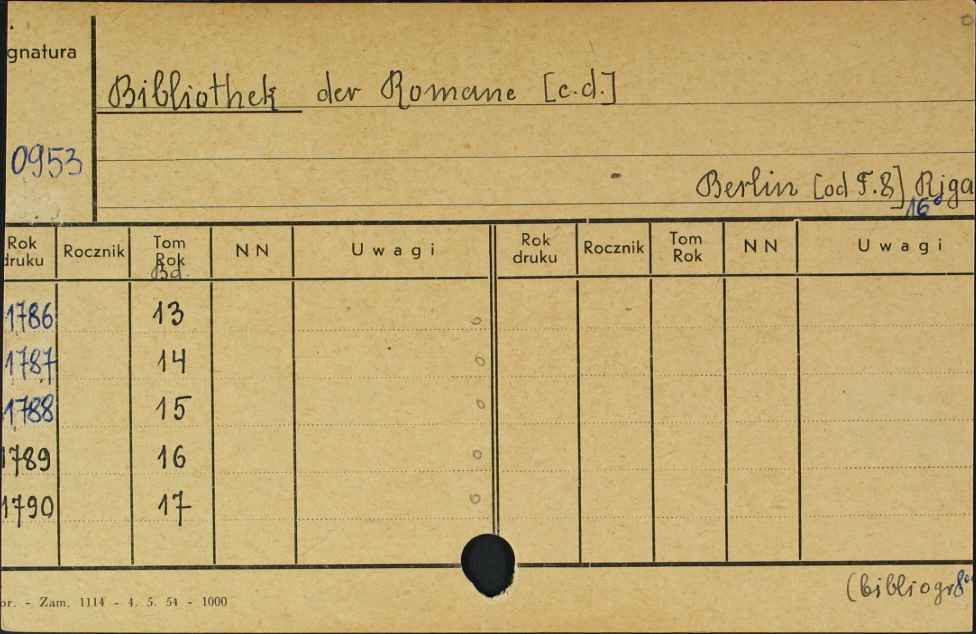 gnatura
Bibliothek der Romane [c.d.]
0953
Berlin [od T.8] Riga
16°
Rok druku Rocznik Tom Rok Bd. NN Uwagi Rok druku Rocznik Tom Rok NN Uwagi
1786 13
1787 14
1788 15
1789 16
1790 17
(bibliogr 8°
or. - Zam. 1114 - 4. 5. 54 - 1000